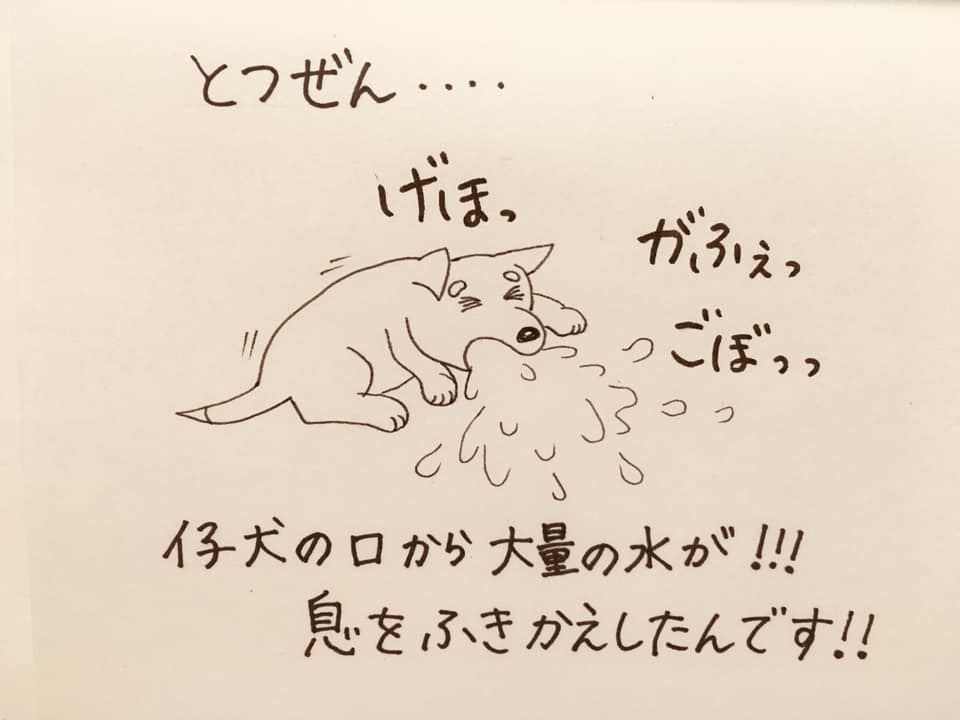 とつぜん‥‥
げほっ
がふぇっ
ごぼっっ
仔犬の口から大量の水が!!!
息をふきかえしたんです!!